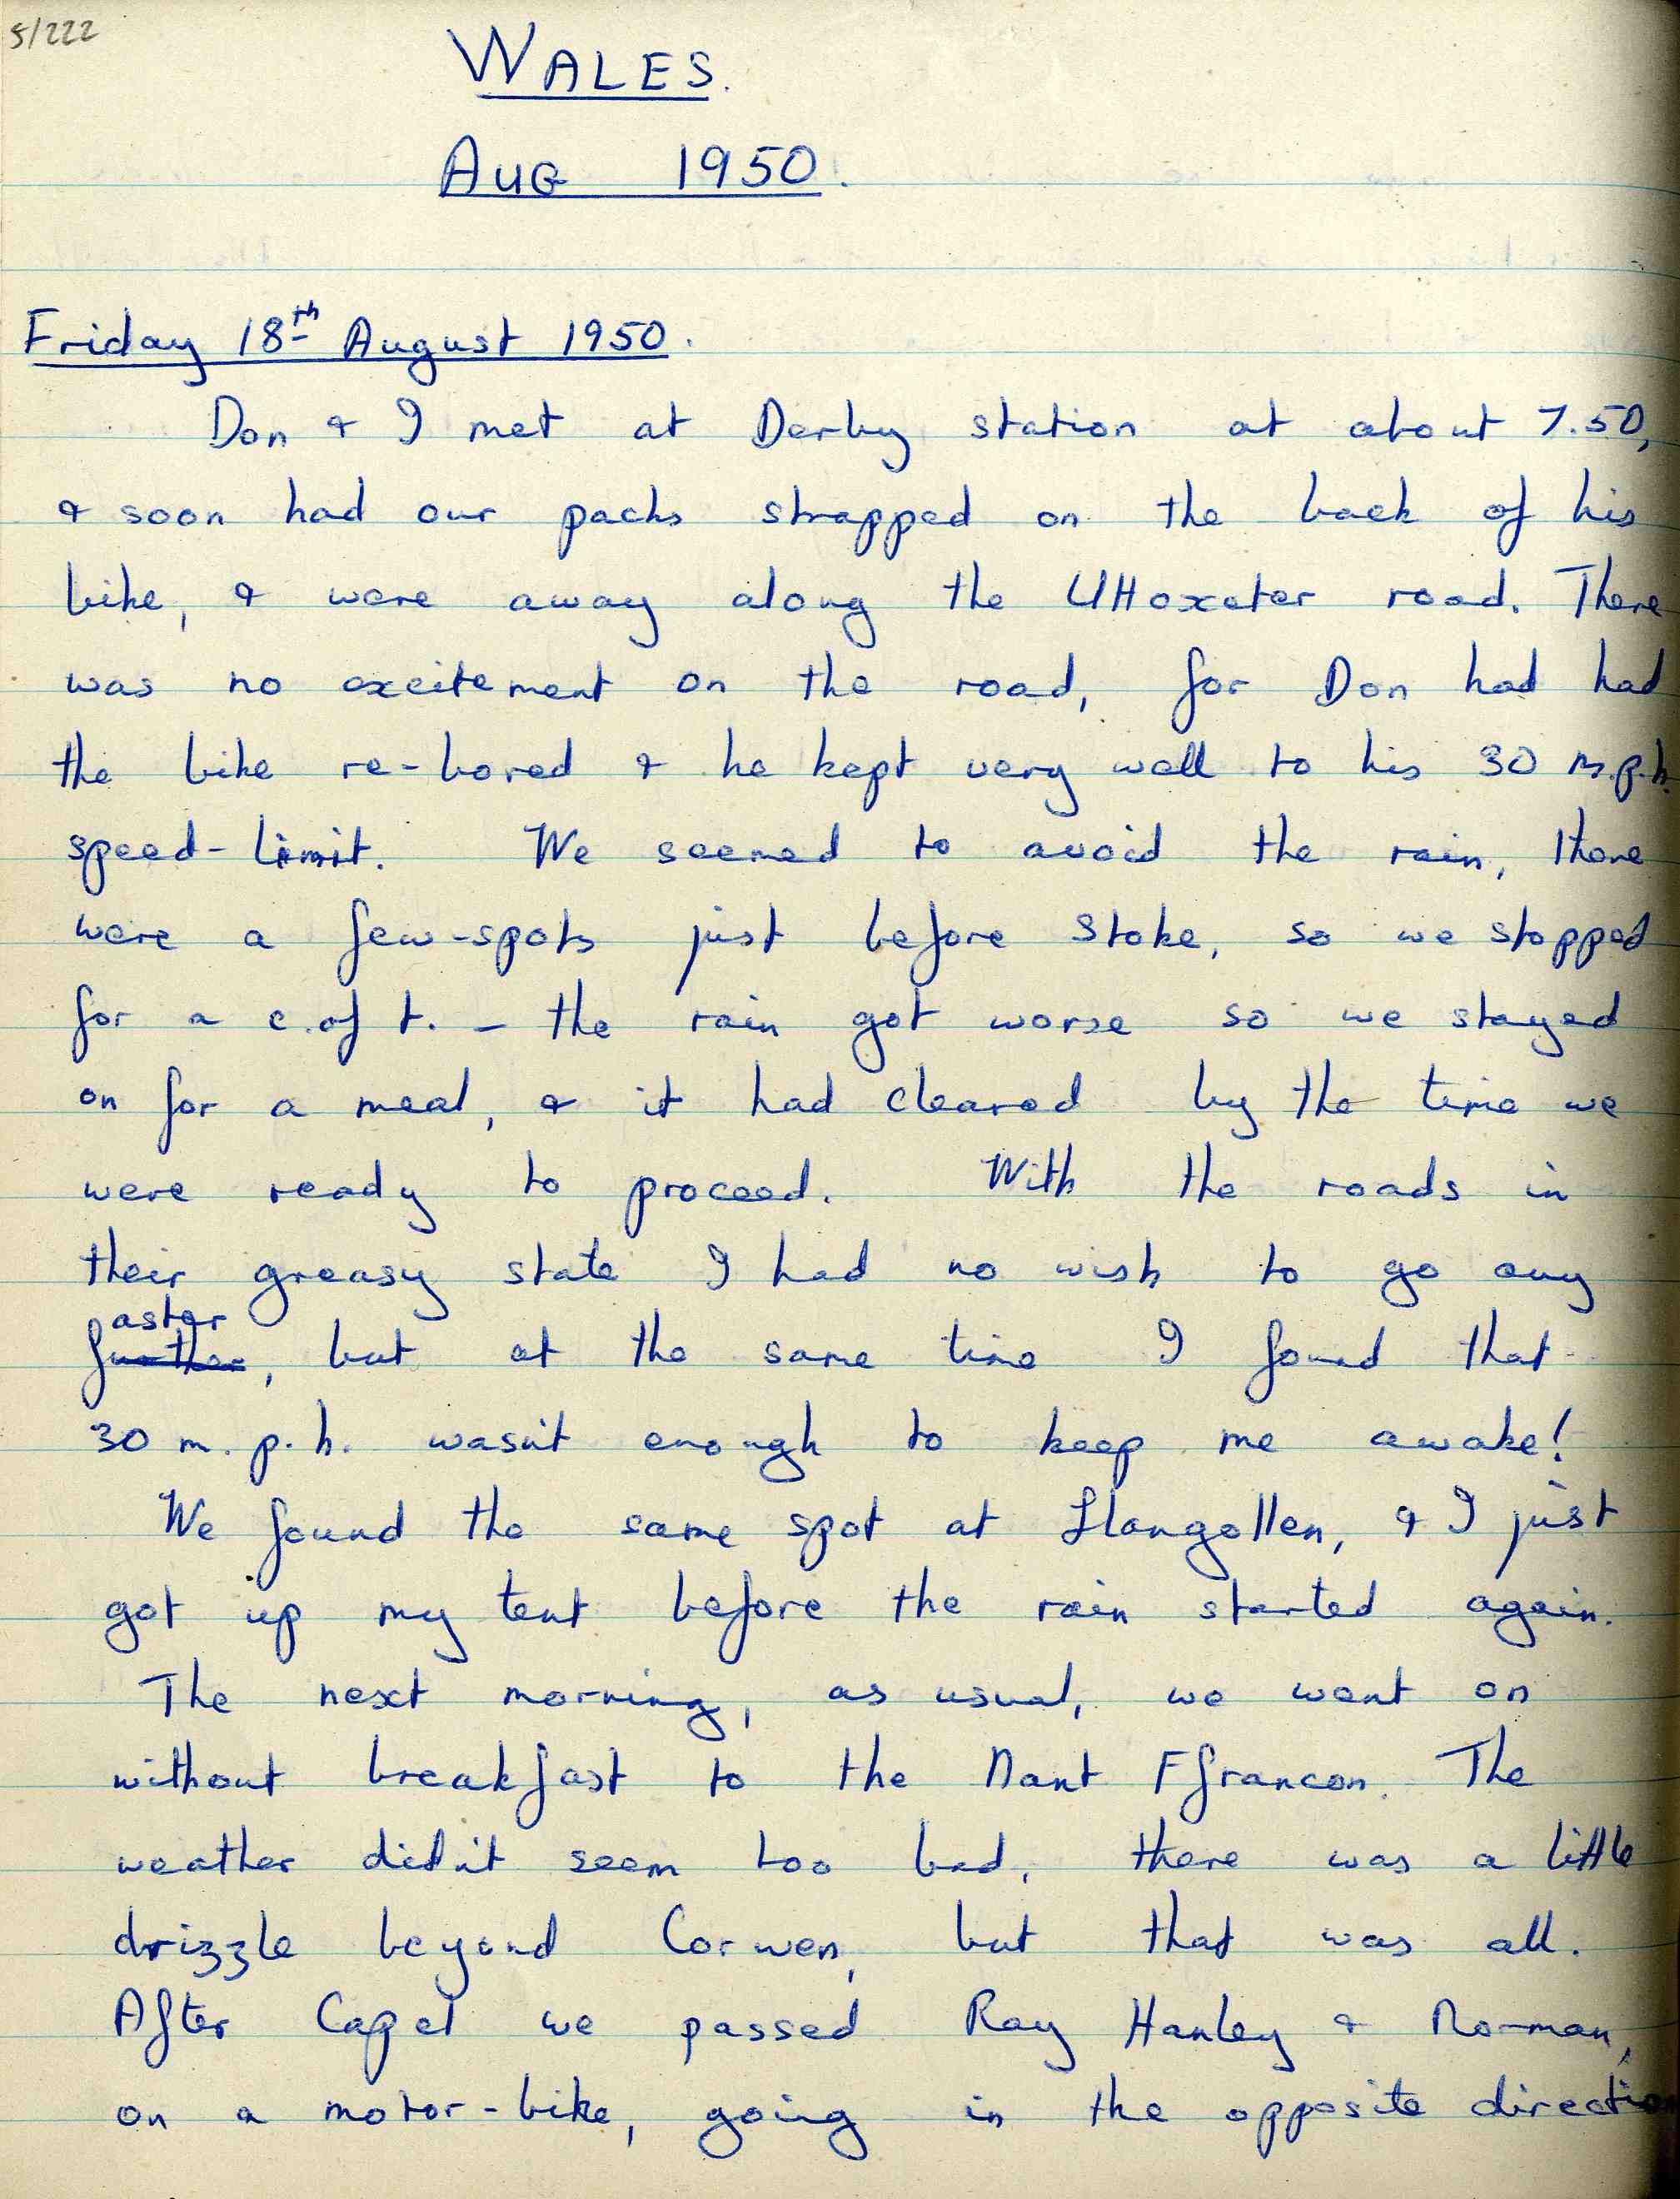 5/222
WALES.
AUG 1950.
Friday 18th August 1950.
Don & I met at Derby station at about 7.50,
& soon had our packs strapped on the back of his
bike, & were away along the Uttoxeter road. There
was no excitement on the road, for Don had had
the bike re-bored & he kept very well to his 30 m.p.h.
speed-limit. We seemed to avoid the rain, there
were a few-spots just before Stoke, so we stopped
for a c. of t. – the rain got worse so we stayed
on for a meal, & it had cleared by the time we
were ready to proceed. With the roads in
their greasy state I had no wish to go any
aster
further, but at the same time I found that
30 m.p.h. wasn't enough to keep me awake!
We found the same spot at Llangollen, & I just
got up my tent before the rain started again.
The next morning, as usual, we went on
without breakfast to the Nant Ffrancon. The
weather didn't seem too bad, there was a little
drizzle beyond Corwen, but that was all.
After Capel we passed Ray Hanley & Norman,
on a motor-bike, going in the opposite direction